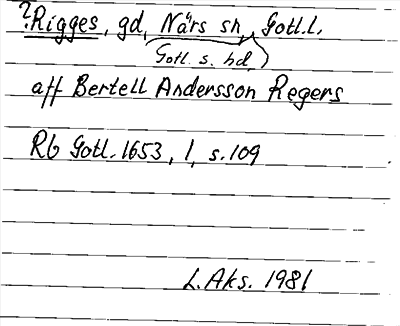 ?Rigges, gd, När​s sn, Gotl.l.
Gotl. s. hd,
aff Bertell Andersson Regers
Rb Gotl. 1653, 1, s. 109
L. Aks. 1981